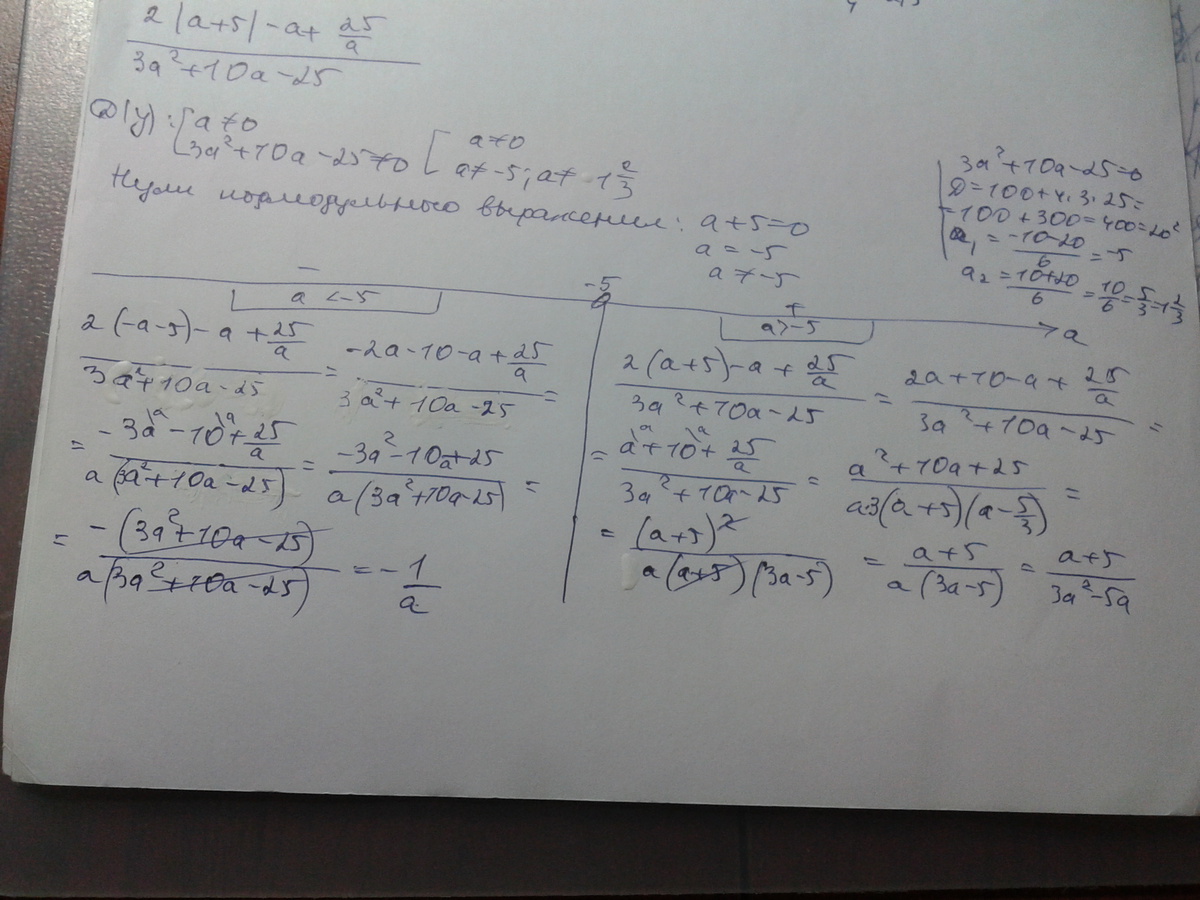 2|a+5|-a+ 25/a
3a²+10a-25
D(y): [a≠0 [a≠0
3a²+10a-25≠0 a≠-5; a≠ 1 2/3
Нули подмодульного выражения: a+5=0
a = -5
a ≠ -5
3a²+10a-25=0
D=100+4·3·25=
=100+300=400=20²
a₁ = (-10-20)/6 = -5
a₂ = (10+20)/6 = 10/6 = 5/3 = 1 2/3
- -5 + a
a < -5
(2(-a-5)-a+25/a)/(3a²+10a-25) = (-2a-10-a+25/a)/(3a²+10a-25) =
= (-3a\ᵃ-10\ᵃ+25/a)/(a(3a²+10a-25)) = (-3a²-10a+25)/(a(3a²+10a-25)) =
= -(3a²+10a-25)/(a(3a²+10a-25)) = -1/a
a>-5
(2(a+5)-a+25/a)/(3a²+10a-25) = (2a+10-a+25/a)/(3a²+10a-25) =
= (a\ᵃ+10\ᵃ+25/a)/(3a²+10a-25) = (a²+10a+25)/(a·3(a+5)(a-5/3)) =
= (a+5)²/(a(a+5)(3a-5)) = (a+5)/(a(3a-5)) = (a+5)/(3a²-5a)